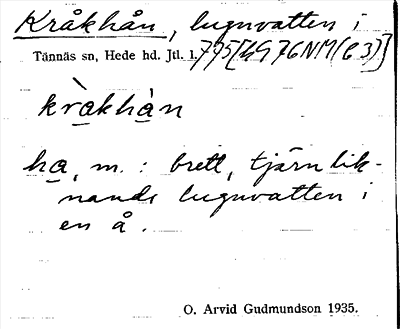 Kråkhån, lugnvatten i
Tännäs sn, Hede hd. Jtl. 1.795[4976NM(e3)]
kràkhàn
ha, m. : brett, tjärnlik-
nande lugnvatten i
en å.
O. Arvid Gudmundson 1935.